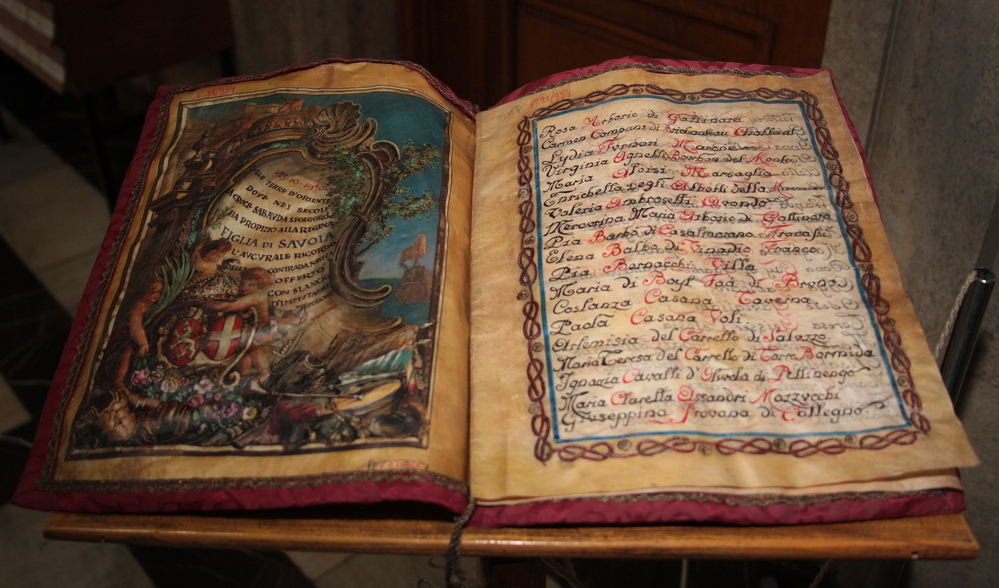 25·10·1930
DALLE TERRE D'ORIENTE
DOVE NEI SECOLI
LA CROCE SABAVDA SFOLGORÒ
SIA PROPIZIO ALLA REGINA
FIGLIA DI SAVOIA
L'AVGVRALE RICORDO
DELLA CONTRADA NATIA
OFFERTO
CON SLANCIO
Rosa Arborio di Gattinara
Carmen Compans di Brichanteau Challant
Lydia Turinori
Virginia Agnelli Bourbon del Monte
Maria Aloisi Marsaglia
Enrichetta degli Abbatti della
Valeria Ambrosetti Avondo
Mercurina Maria Arborio di Gattinara
Pia Barbò di Casalmorano Tracassi
Elena Balbo di Vinadio Franso
Pia Bernocchi Villa
Maria di Bayl Taa di Bruno
Costanza Casana Taverna
Paola Casana Voli
Artemisia del Carretto di Saluzzo
Maria Teresa del Carretto di Torre Bormida
Ignazia Cavalli d'Olivola di Pettinengo
Maria Ciarella Assandri Mazzucchi
Giuseppina Provana di Collegno